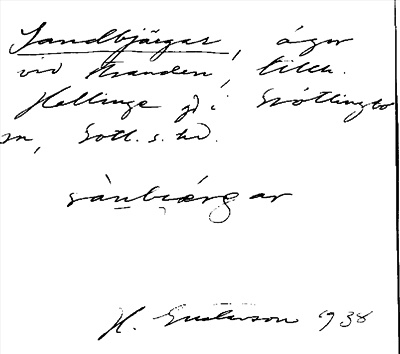 Sandbjärgar, ägor
vid stranden, tillh.
Hallinge gd i Gröttlingbo
sn, Gotl. s. hd.
sànbiærgar
H. Gustavson 1938